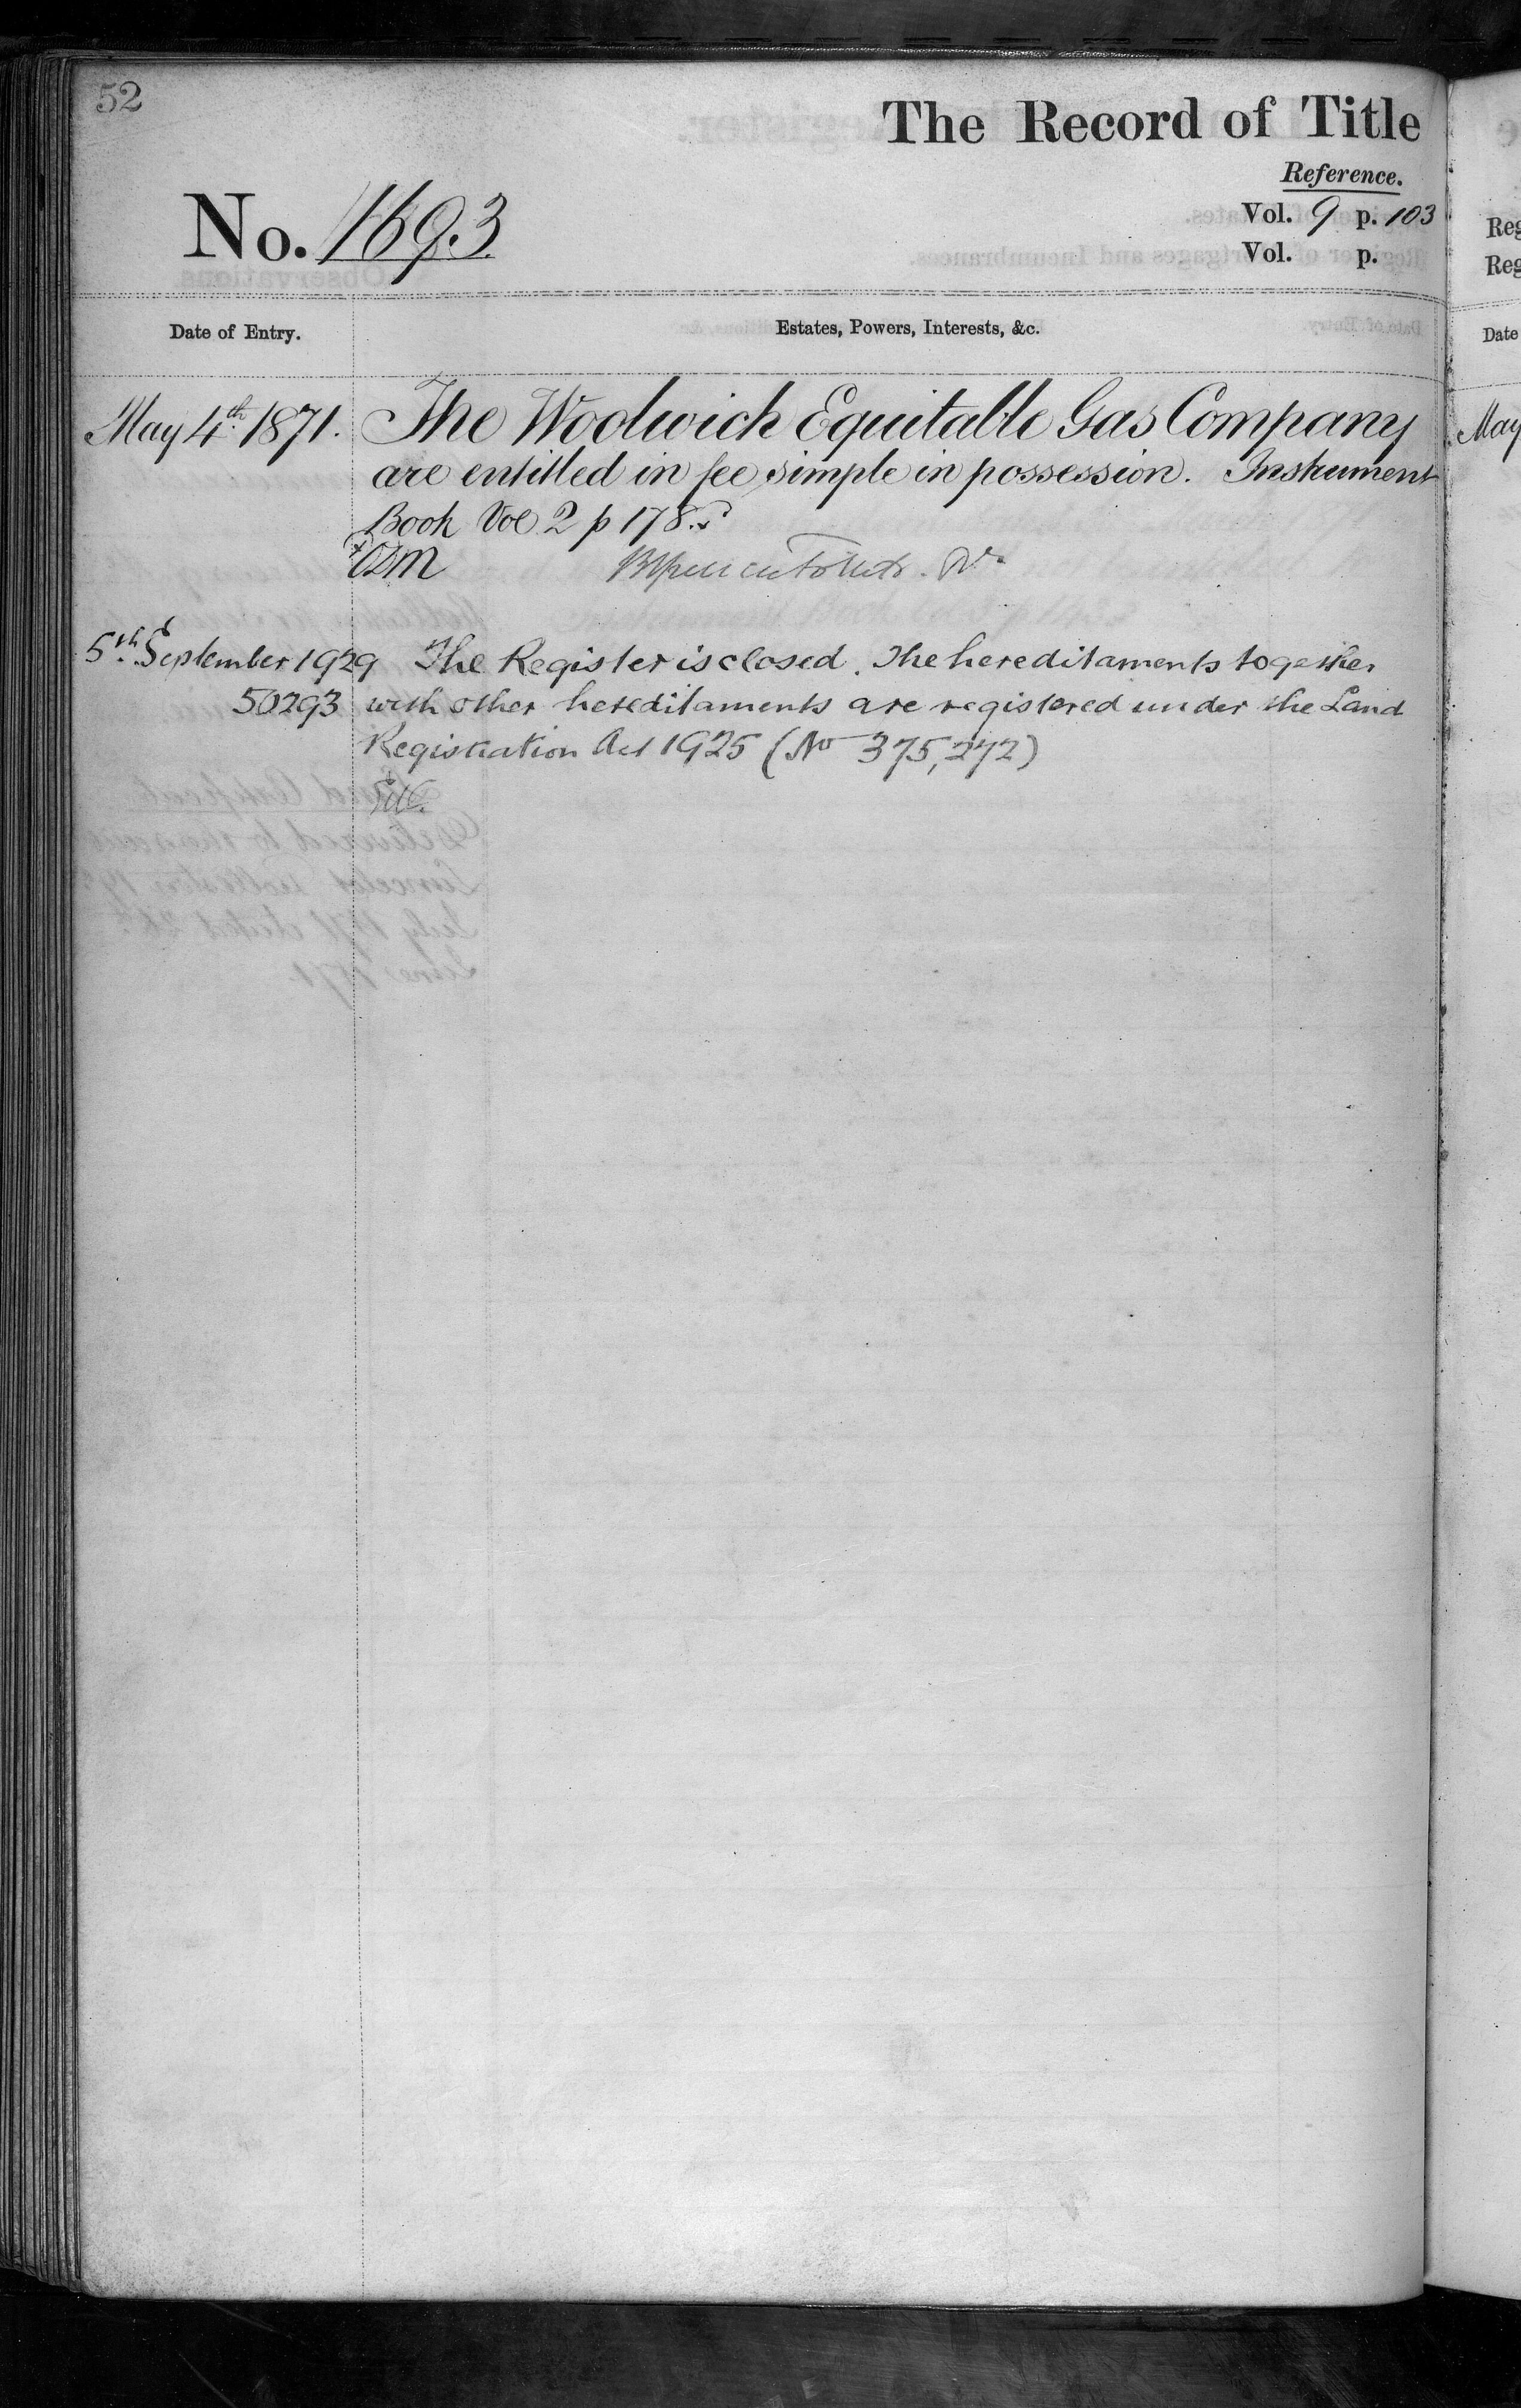 52
The Record of Title
Reference.
No. 1693.
Vol. 9 p. 103
Vol. p.
Date of Entry.
Estates, Powers, Interests, &c.
May 4th 1871.
The Woolwich Equitable Gas Company
are entitled in fee simple in possession. Instrument
Book Vol 2 p 178.
5th September 1929 The Register is closed. The hereditaments together
50293 with other hereditaments are registered under the Land
Registration Act 1925 (No 375,272)
Reg
Reg
Date
May